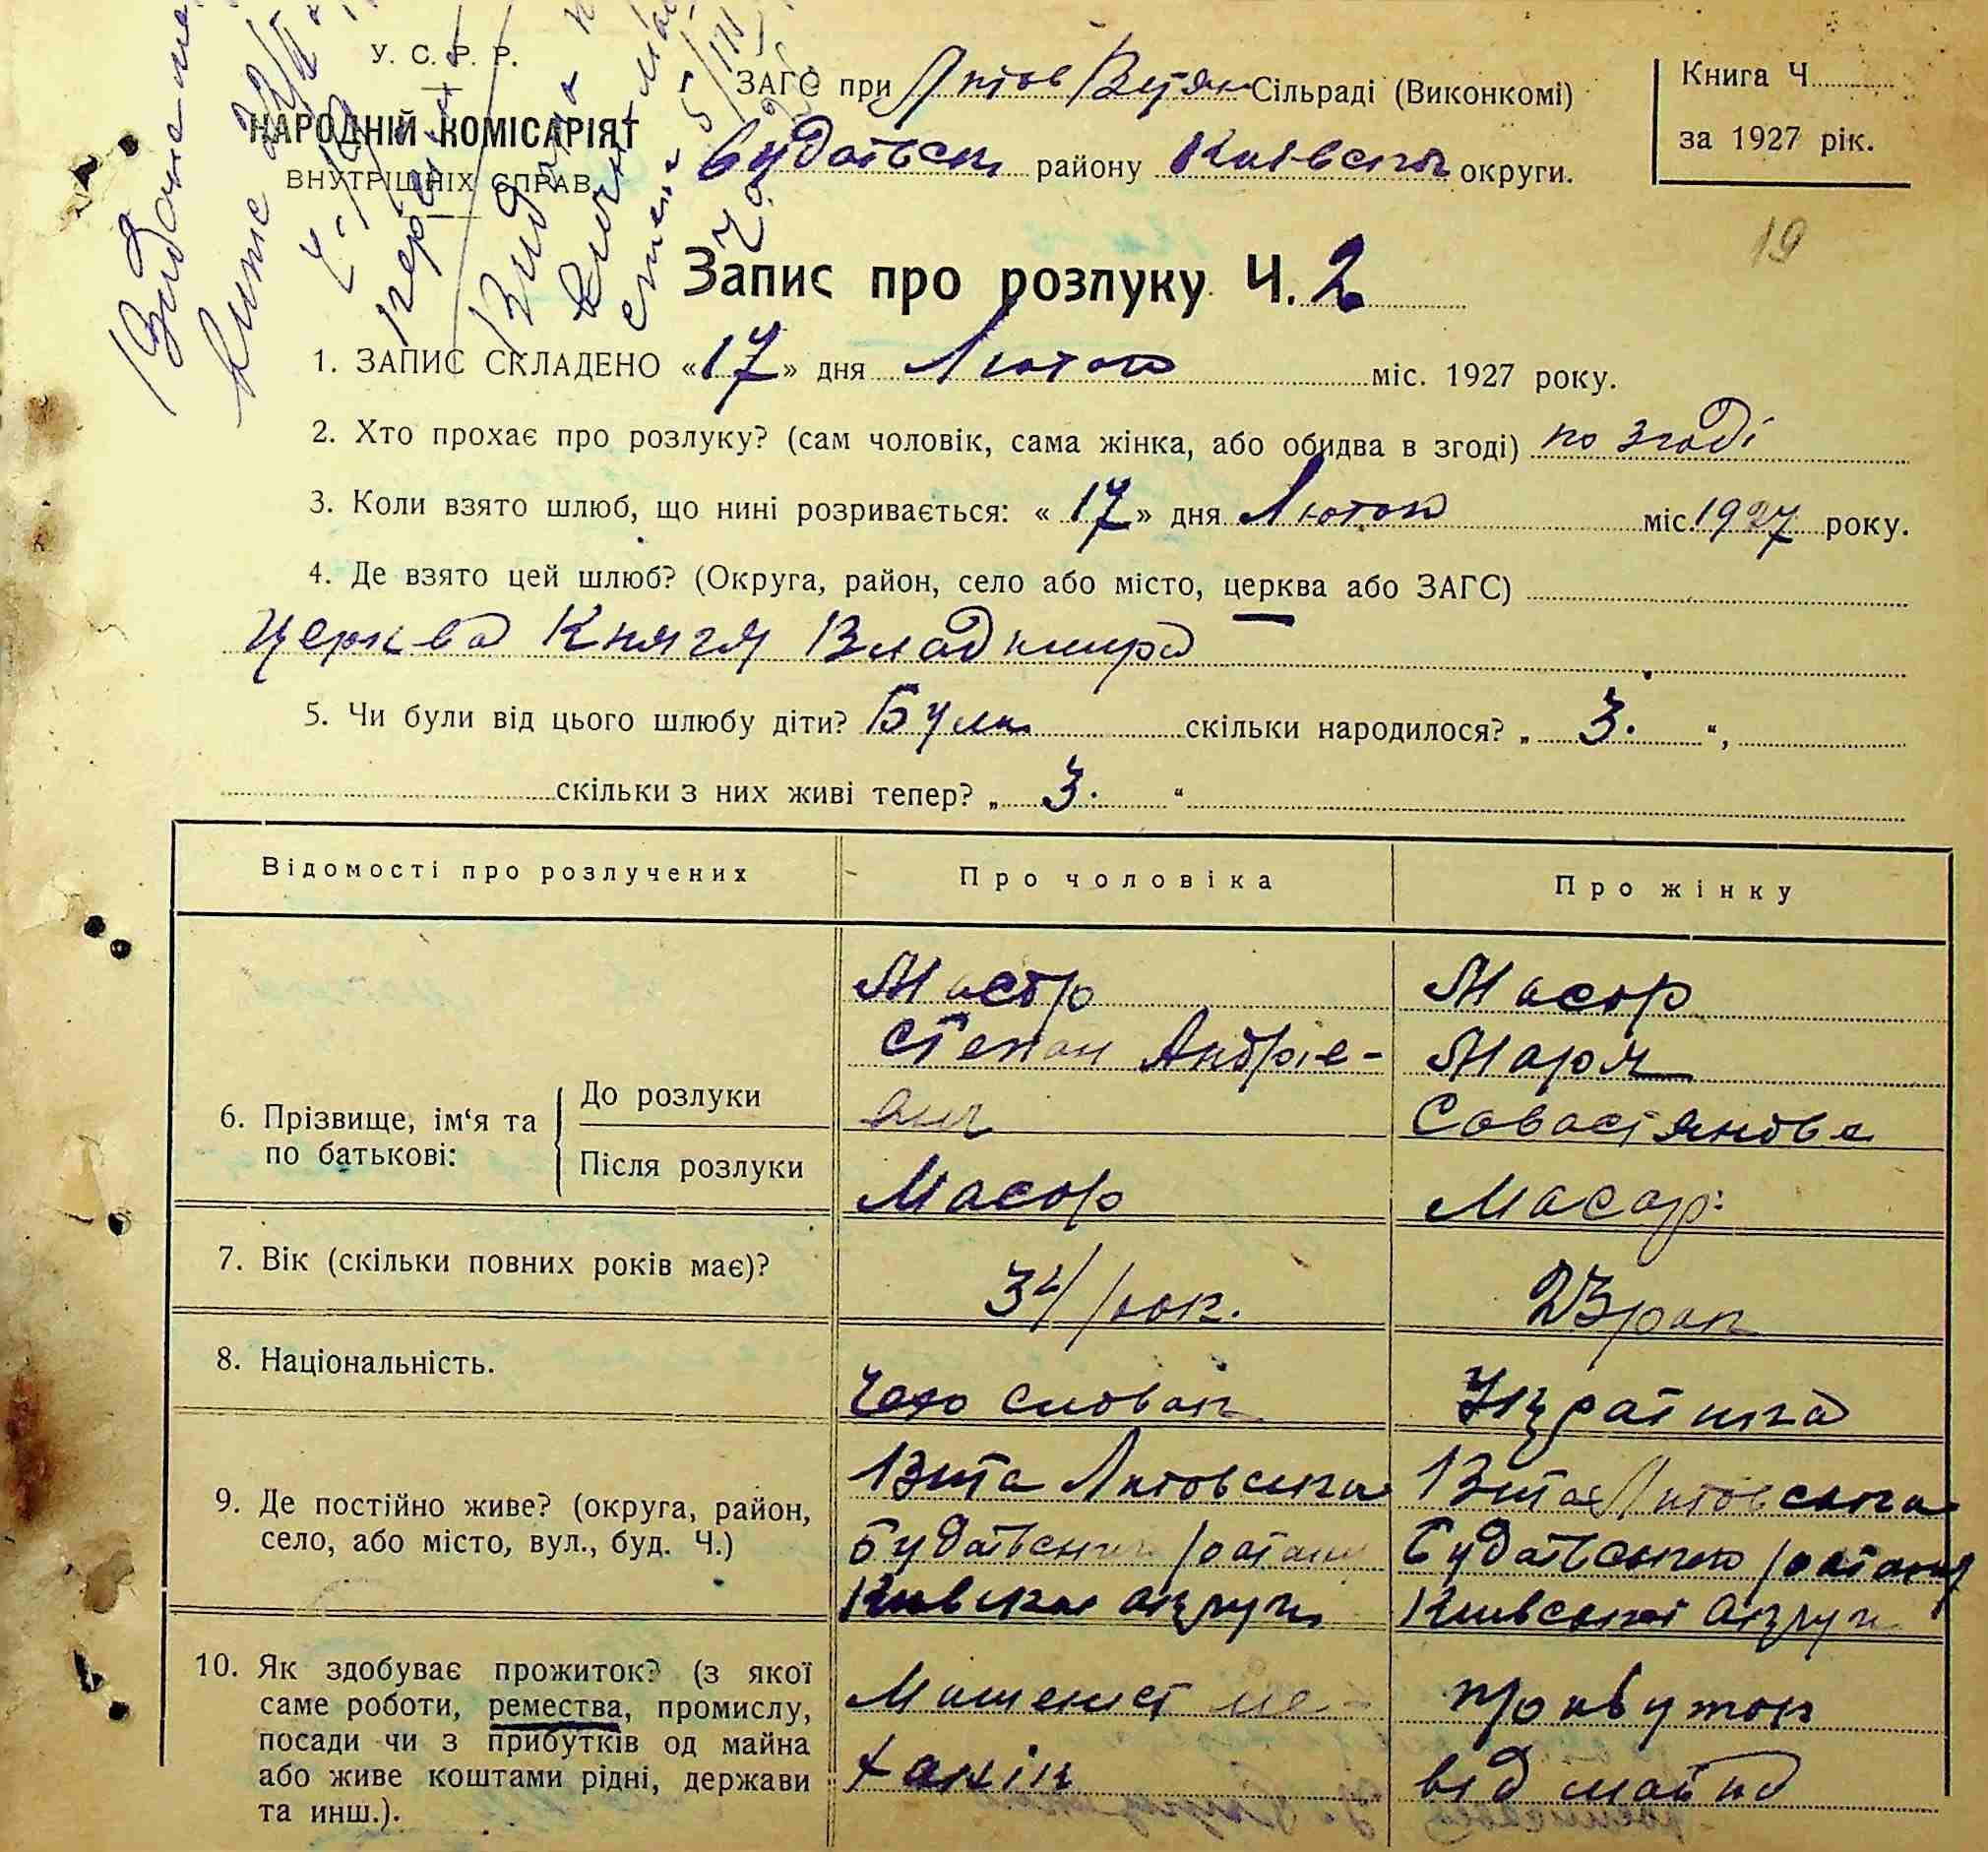 У. С. Р. Р.
НАРОДНІЙ КОМІСАРІЯТ
ВНУТРІШНІХ СПРАВ
ЗАГС при Литов Витян Сільраді (Виконкомі)
Будаївськ району Київськ округи.
Книга Ч.
за 1927 рік.
19
Запис про розлуку Ч. 2
1. ЗАПИС СКЛАДЕНО «17» дня Лютого міс. 1927 року.
2. Хто прохає про розлуку? (сам чоловік, сама жінка, або обидва в згоді) по згоді
3. Коли взято шлюб, що нині розривається: «17» дня Лютого міс. 1927 року.
4. Де взято цей шлюб? (Округа, район, село або місто, церква або ЗАГС)
церква Князя Владимира
5. Чи були від цього шлюбу діти? Були скільки народилося? „ 3. “,
скільки з них живі тепер? „ 3. “
Відомості про розлучених Про чоловіка Про жінку
6. Прізвище, ім‘я та по батькові:
До розлуки
Масор Масор
Степан Андріе- Маря
Савастянова
Після розлуки
Масор Масор:
7. Вік (скільки повних років має)? 34 рок. 23 рок
8. Національність. Чехо словак Українка
9. Де постійно живе? (округа, район,
село, або місто, вул., буд. Ч.)
Вита Литовська Вита Литовська
Будаївського району Будаївського району
Київської округи Київської округи
10. Як здобуває прожиток? (з якої
саме роботи, ремества, промислу,
посади чи з прибутків од майна
або живе коштами рідні, держави
та инш.).
Машеніст ме- прибуток
ханік від майна